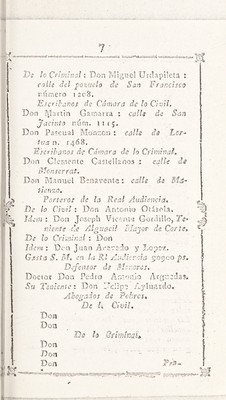 7
De lo Criminal: Don Miguel Urdapileta:
calle del pozuelo de San Francisco
número 1208.
Escribanos de Cámara de lo Civil.
Don Martin Gamarra: calle de San
Jacinto núm. 1115.
Don Pascual Monzon: calle de Lor-
tua n. 1468.
Escribanos de Cámara de lo Criminal.
Don Clemente Castellanos: calle de
Monserrat.
Don Manuel Benavente: calle de Ma-
sienzo.
Porteros de la Real Audiencia.
De lo Civil: Don Antonio Otárola.
Idem: Don Joseph Vicente Gordillo, Te-
niente de Alguacil Mayor de Corte.
De lo Criminal: Don
Idem: Don Juan Acevado y Lopez.
Gasta S. M. en la Rl Audiencia 90900 ps.
Defensor de Menores.
Doctor Don Pedro Antonio Arguedas.
Su Teniente: Don Felipe Ayluardo.
Abogados de Pobres.
De lo Civil.
Don
Don
De lo Criminal.
Don
Don
Don Pro-